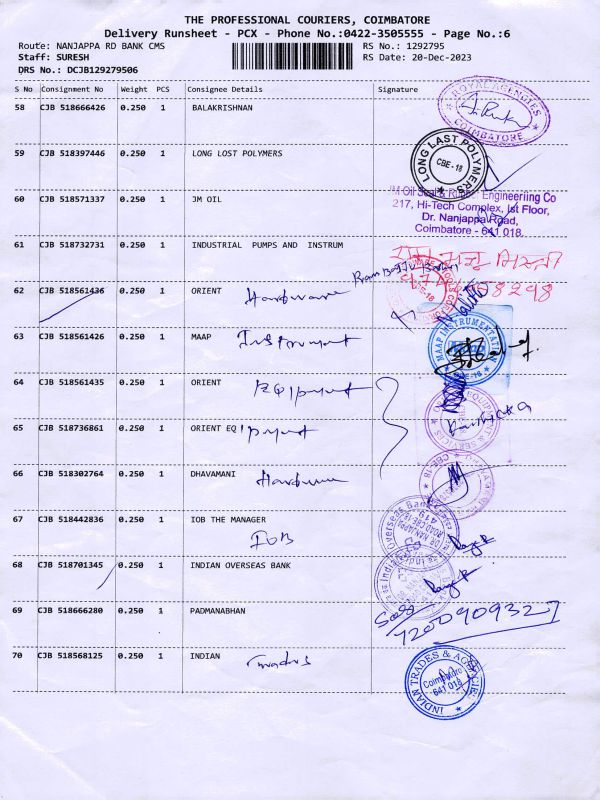 THE PROFESSIONAL COURIERS, COIMBATORE
Delivery Runsheet - PCX - Phone No.:0422-3505555 - Page No.:6
Route: NANJAPPA RD BANK CMS
RS No.: 1292795
Staff: SURESH
RS Date: 20-Dec-2023
DRS No.: DCJB129279506
S No Consignment No Weight PCS Consignee Details Signature
58 CJB 518666426 0.250 1 BALAKRISHNAN
ROYAL AGENCIES
COIMBATORE
59 CJB 518397446 0.250 1 LONG LOST POLYMERS
LONG LAST POLYMERS
CBE-18
60 CJB 518571337 0.250 1 JM OIL
JM Oil Seal & Engineeriing Co
217, Hi-Tech Complex, Ist Floor,
Dr. Nanjappa Road,
Coimbatore - 641 018.
61 CJB 518732731 0.250 1 INDUSTRIAL PUMPS AND INSTRUM
62 CJB 518561436 0.250 1 ORIENT Hardware
63 CJB 518561426 0.250 1 MAAP Instrument
MAAP INSTRUMENTATION
64 CJB 518561435 0.250 1 ORIENT EQIpment
65 CJB 518736861 0.250 1 ORIENT EQIpment
EQUIPMENT & SERVICES
66 CJB 518302764 0.250 1 DHAVAMANI Hardware
67 CJB 518442836 0.250 1 IOB THE MANAGER
IOB
Indian Overseas Bank
68 CJB 518701345 0.250 1 INDIAN OVERSEAS BANK
69 CJB 518666280 0.250 1 PADMANABHAN
7200909327
70 CJB 518568125 0.250 1 INDIAN Tradus
INDIAN TRADES & AGENCIES
Coimbatore
641 018